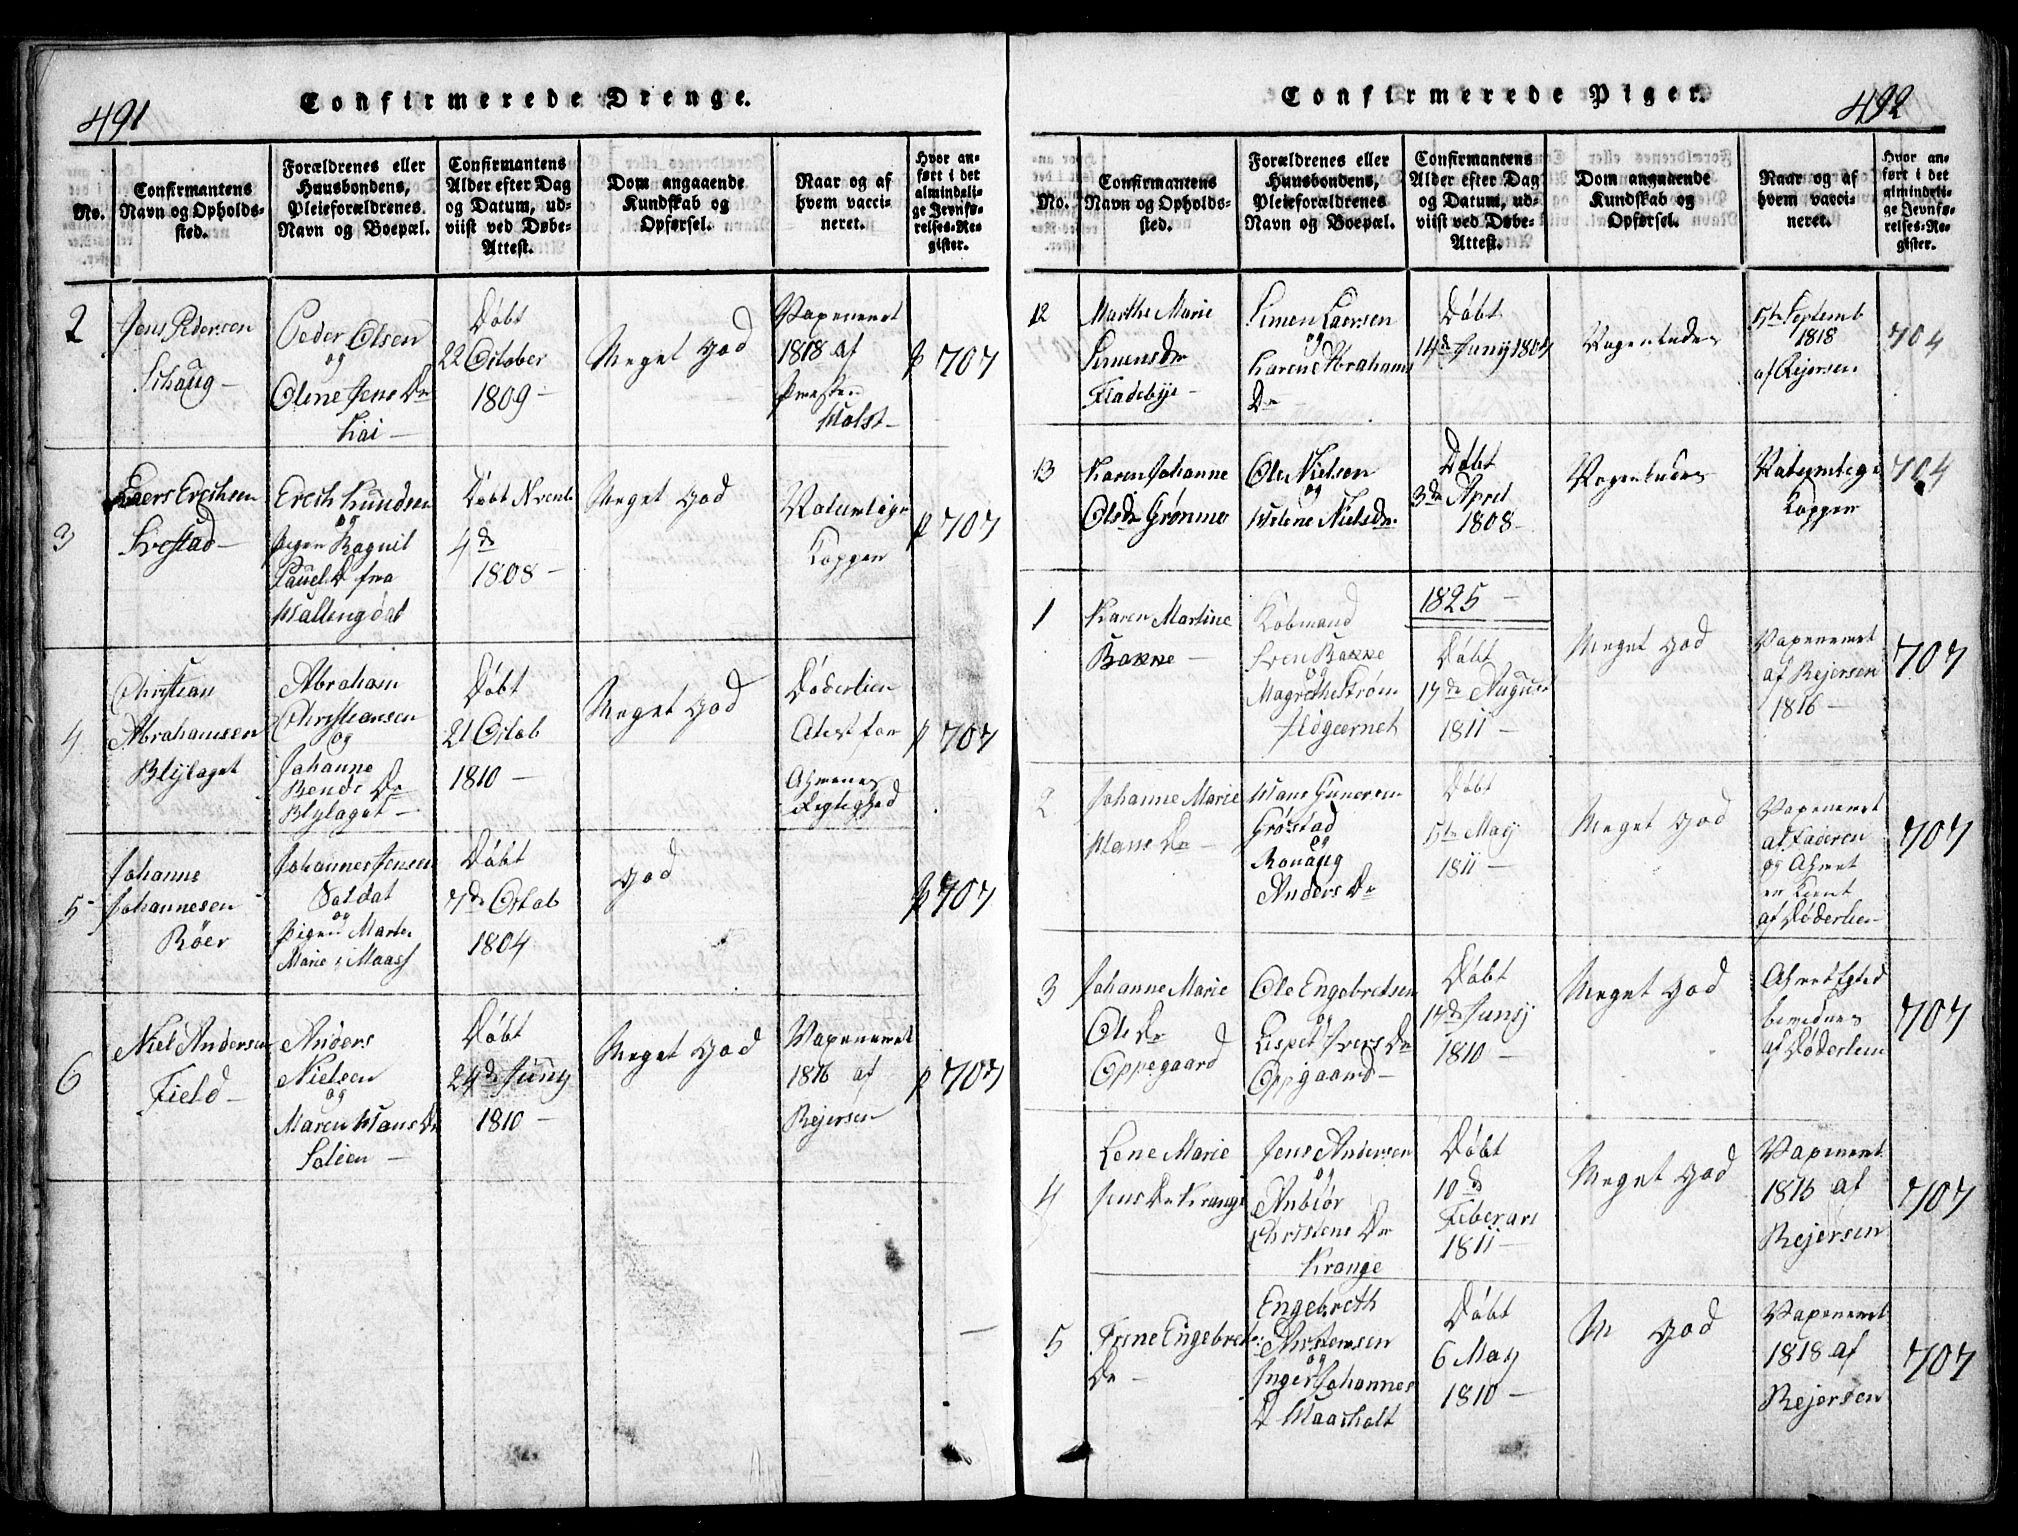 491
Confirmerede Drenge.
No.
Confirmantens
Navn og Opholds-
sted.
Forældrenes eller
Huusbondens,
Pleieforældrenes
Navn og Boepæl.
Confirmantens
Alder efter Dag
og Datum, ud-
viist ved Døbe-
Attest.
Dom angaaende
Kundskab og
Opførsel.
Naar og af
hvem vacci-
neret.
Hvor an-
ført i det
almindeli-
ge Jevnfø-
relses-Re-
gister.
2
Jens Pedersen
Schaug
Peder Olsen
og
Olene Jens Dr
Døbt
22 October
1809
Meget god
Vaxeneret
1818 af
Præsten
Holst
p 707
3
Laers Erichsen
Erich Knudsen
og
Pigen Ragnil
Pauel D fra
Døbt Nvemb
4 de
1808
Meget god
Naturlige
Kopper
p 707
4
Christian
Abrahamsen
Blylaget
Abraham
Christiansen
og
Johanne
Bends Dr
Blylaget
Døbt
21 Octob
1810
Meget god
Døderlien
Atest for
p 707
5
Johanne
Johannesen
Røer
Johannes Jensen
Soldat
og
Pigen Marte
Marie i Maass
Døbt
7 de Octob
1804
god
p 707
6
Niel Andersen
Field
Anders
Nielsen
og
Maren Hans Dr
Solien
Døbt
24 de Juny
1810
Meget god
Vaxeneret
1816 af
Rejersen
p 707
492
Confirmerede Piger.
No.
Confirmantens
Navn og Opholds-
sted.
Forældrenes eller
Huusbondens,
Pleieforældrenes
Navn og Boepæl.
Confirmantens
Alder efter Dag
og Datum, ud-
viist ved Døbe-
Attest.
Dom angaaende
Kundskab og
Opførsel.
Naar og af
hvem vacci-
neret.
Hvor an-
ført i det
almindeli-
ge Jevnfø-
relses-Re-
gister.
12
Marthe Marie
Simens Dr
Fladebye
Simen Laersen
og
Karen Abrahams
Dr
Døbt
14 de Juny 1807
5te Septemb
1818
af Rejersen
704
13
Karen Johanne
Ols Dr Grønmo
Ole Nielsen
og
Helene Niels Dr
Døbt
3 de Aprel
1808
Naturlige
Kopper
704
1825
1
Karen Martine
Bakke
Kobmand
Sven Bakke
og
Magrethe Strøm
Døbt
17 de August
1811
Meget god
Vaxeneret
af Rejersen
1816
707
2
Johanne Marie
Hans Dr
Hans Gunersen
Grøstad
og
Ronaug
Anders Dr
Døbt
5te May
1811
Meget god
Vaxeneret
af Faderen
af Døderlien
707
3
Johanne Marie
Ole Dr
Oppegaard
Ole Engebretsen
og
Lispet Ivers Dr
Oppgaard
Døbt
17 de Juny
1810
Meget god
af Døderlein
707
4
Lene Marie
Jens Dr Krange
Jens Andersen
og
Anbiør
Christens Dr
Krange
Døbt
10 de
Feberari
1811
Meget god
Vaxeneret
1815 af
Rejersen
707
5
Engebret
Dr
Engebreth
Christensen
og
Inger Johannes
D Haasholt
Døbt
6 May
1810
M god
Vaxeneret
1818 af
Rejersen
707